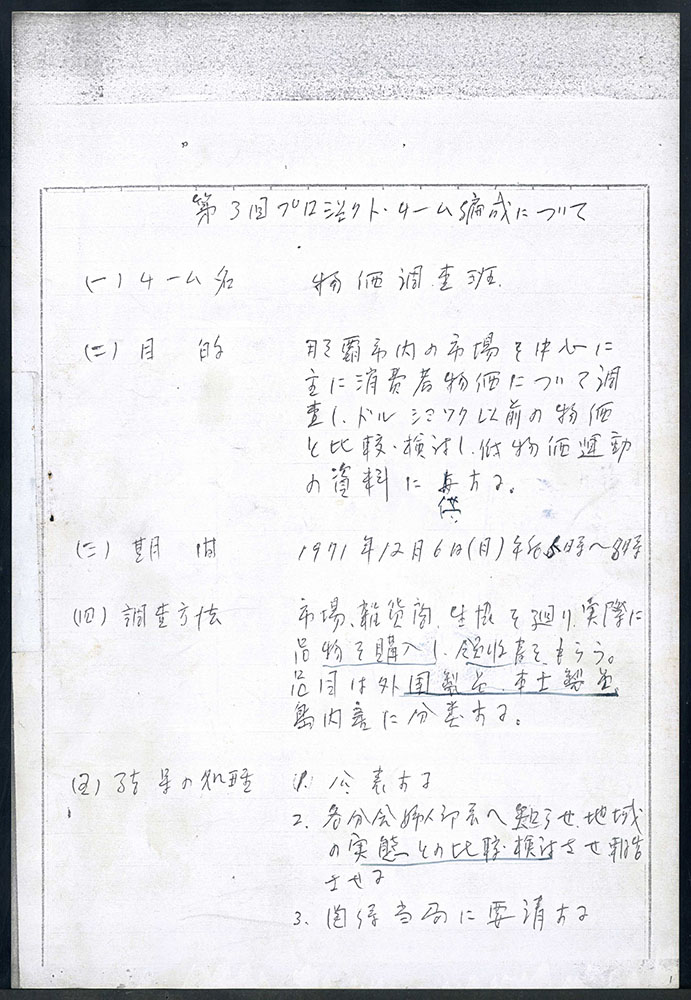 第3回プロジェクト・チーム編成について
(一) チーム名 物価調査班
(二) 目的 那覇市内の市場を中心に
主に消費者物価について調
査し、ドルショック以前の物価
と比較・検討し、低物価運動
の資料に供する。
(三) 期間 1971年12月6日(月)午后5時〜8時
(四) 調査方法 市場、雑貨商、生協を廻り、実際に
品物を購入し、領収書をもらう。
品目は外国製品、本土製品、
島内産に分類する。
(五) 結果の処理 1. 公表する
2. 各分会婦人部長へ知らせ、地域
の実態との比較・検討させ報告
させる
3. 関係当局に要請する
1